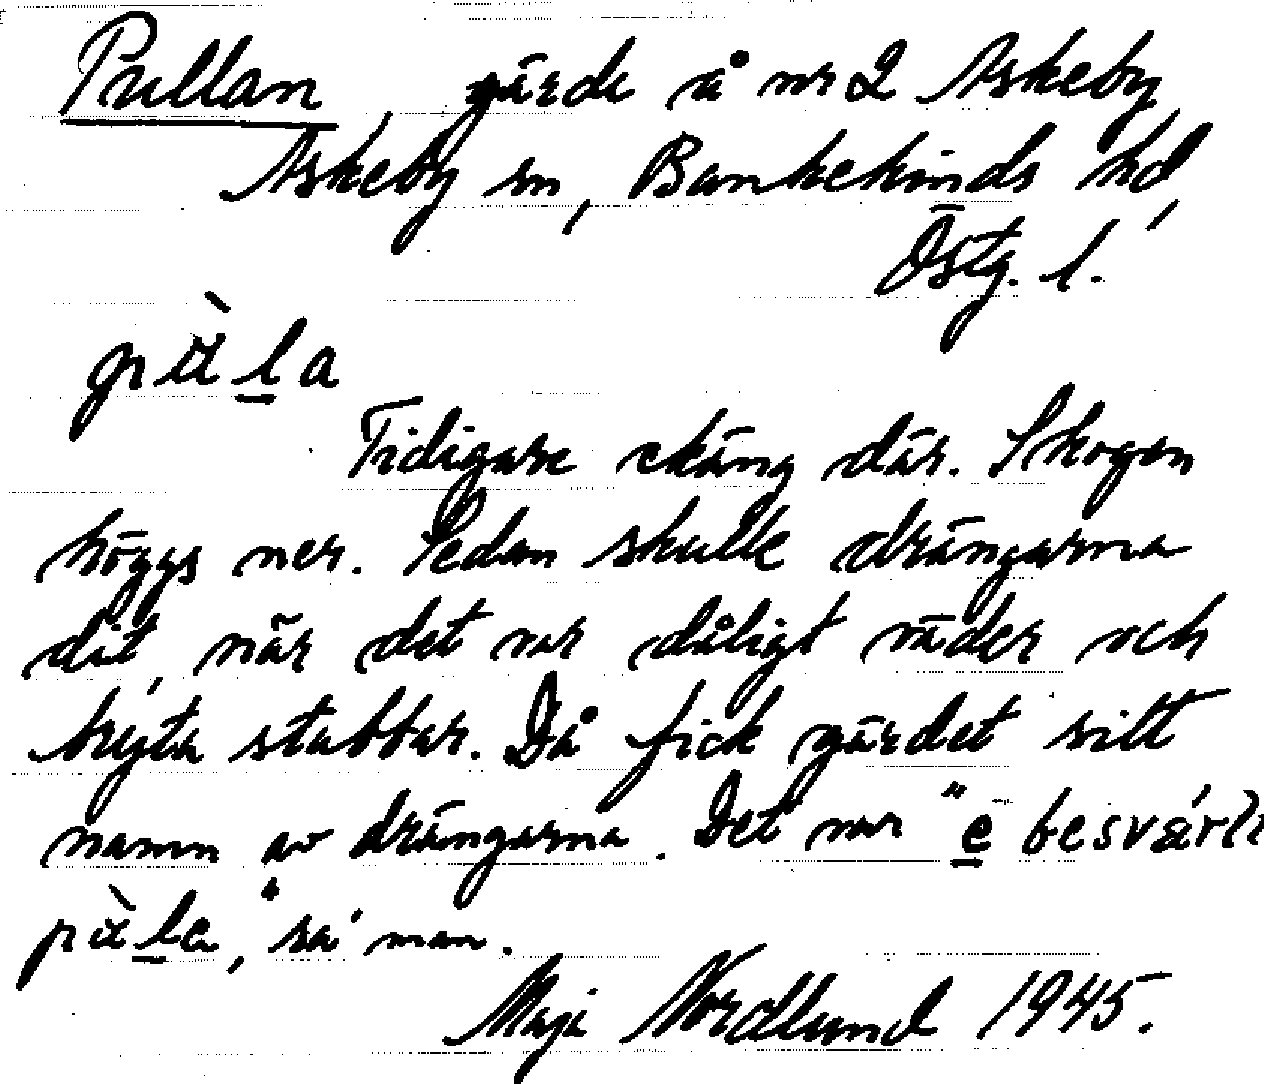 Pullan gärde å nr 2 Askeby
Askeby sn, Bankekinds hd,
Östg. l.
pùla
Tidigare skäng där. Skogen
höggs ner. Sedan skulle drängarna
dit, när det var dåligt väder och
bryta stubbar. Då fick gärdet sitt
namn av drängarna. Det var "e besvärli
pùle," sa' man.
Maja Nordlund 1945.